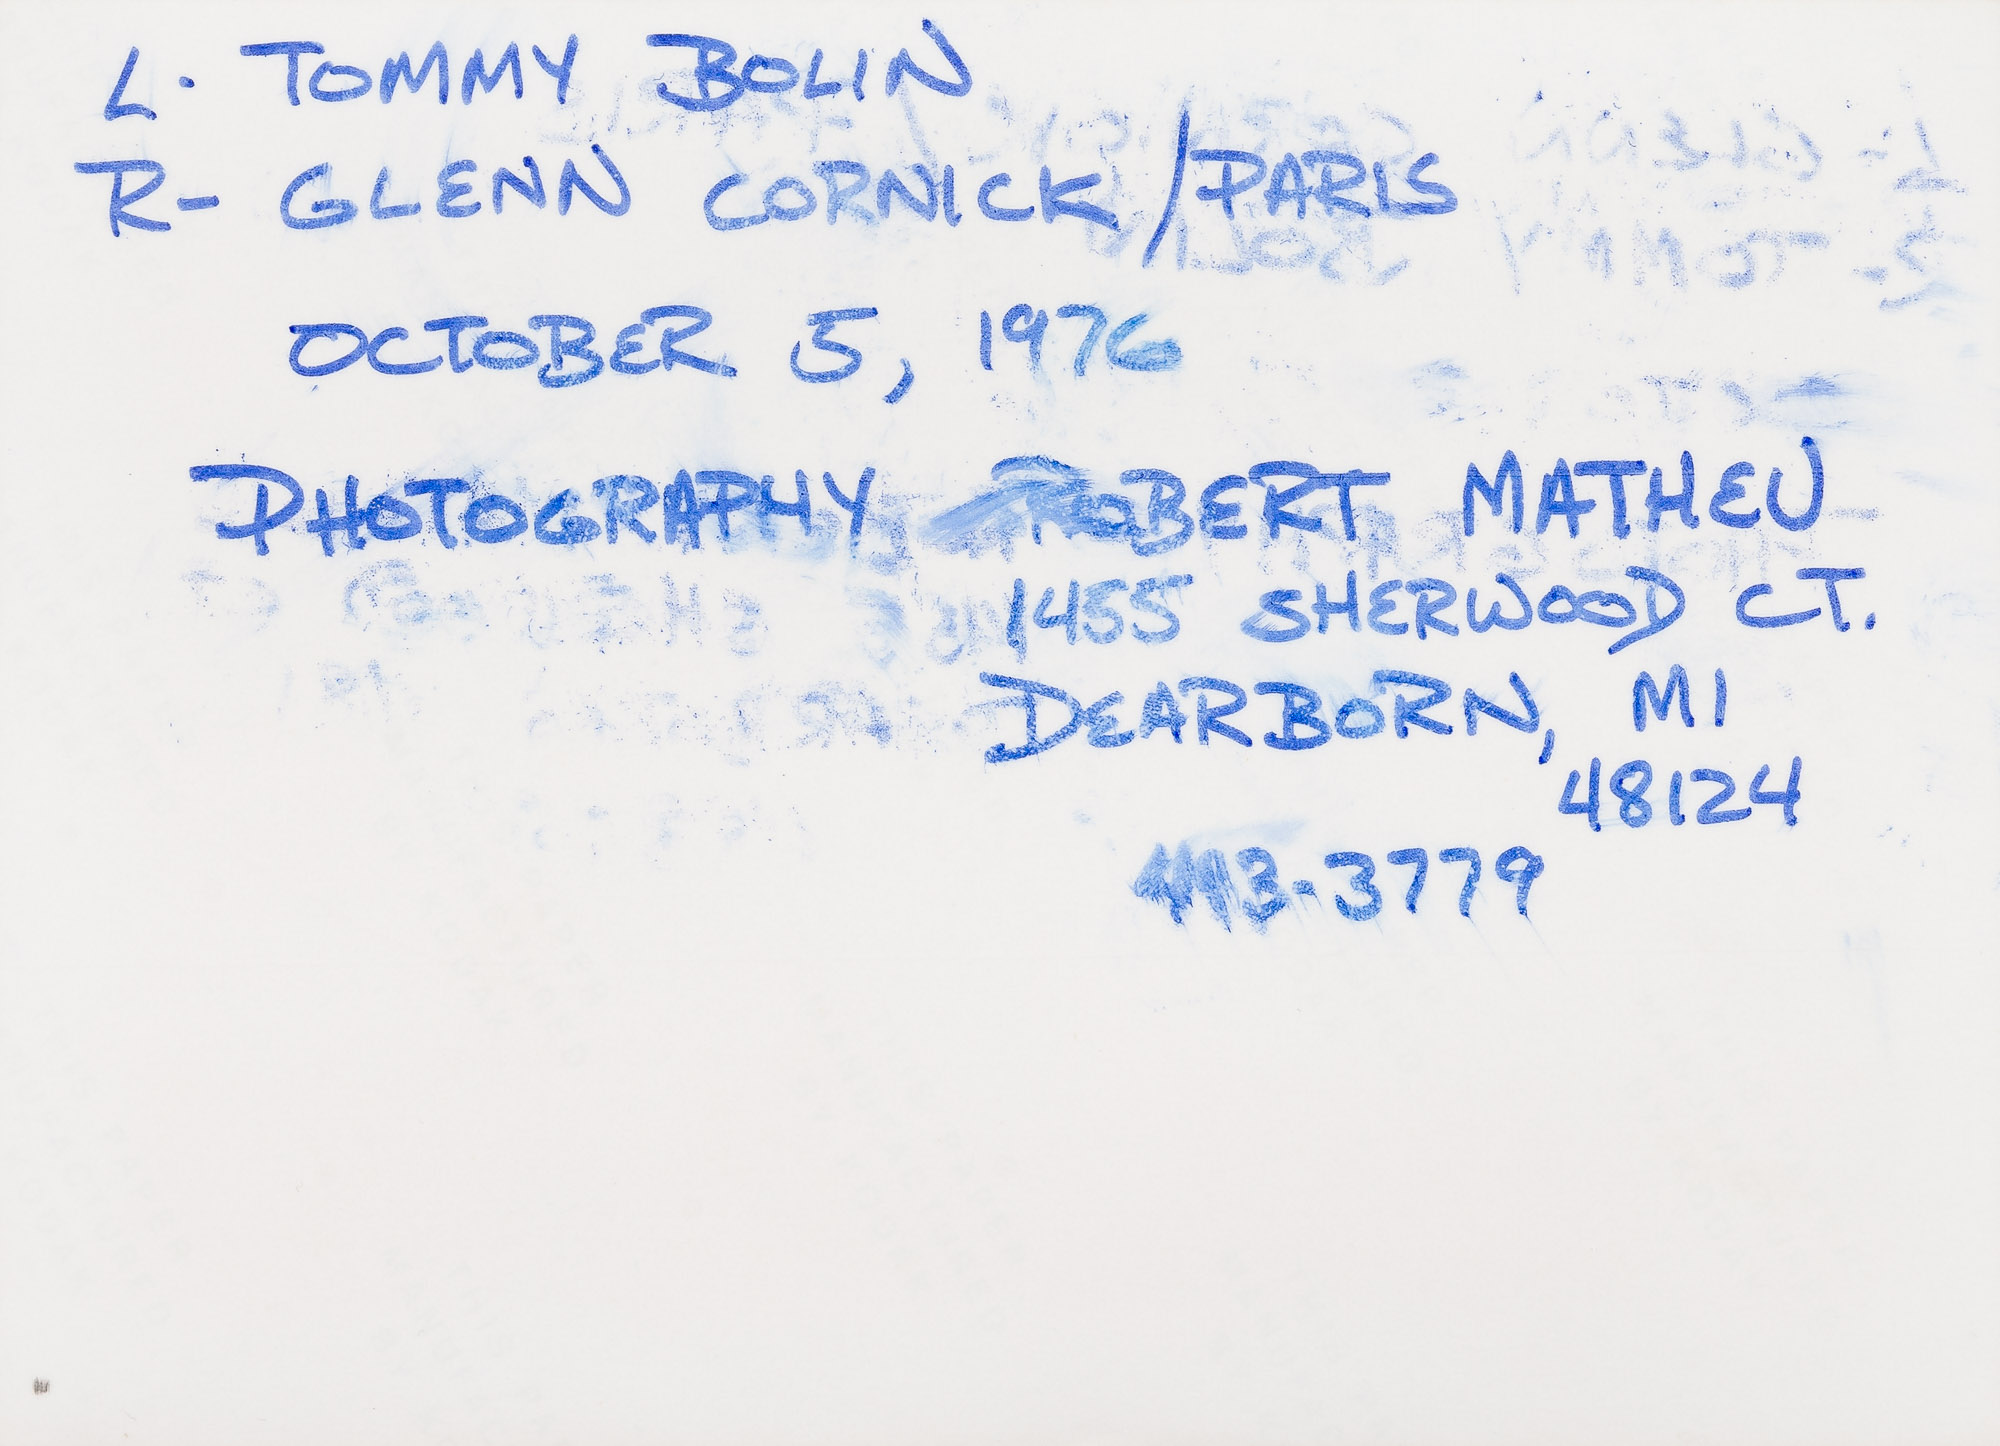 L. TOMMY BOLIN
R- GLENN CORNICK/PARIS
OCTOBER 5, 1976
PHOTOGRAPHY ROBERT MATHEU
1455 SHERWOOD CT.
DEARBORN, MI
48124
-3779